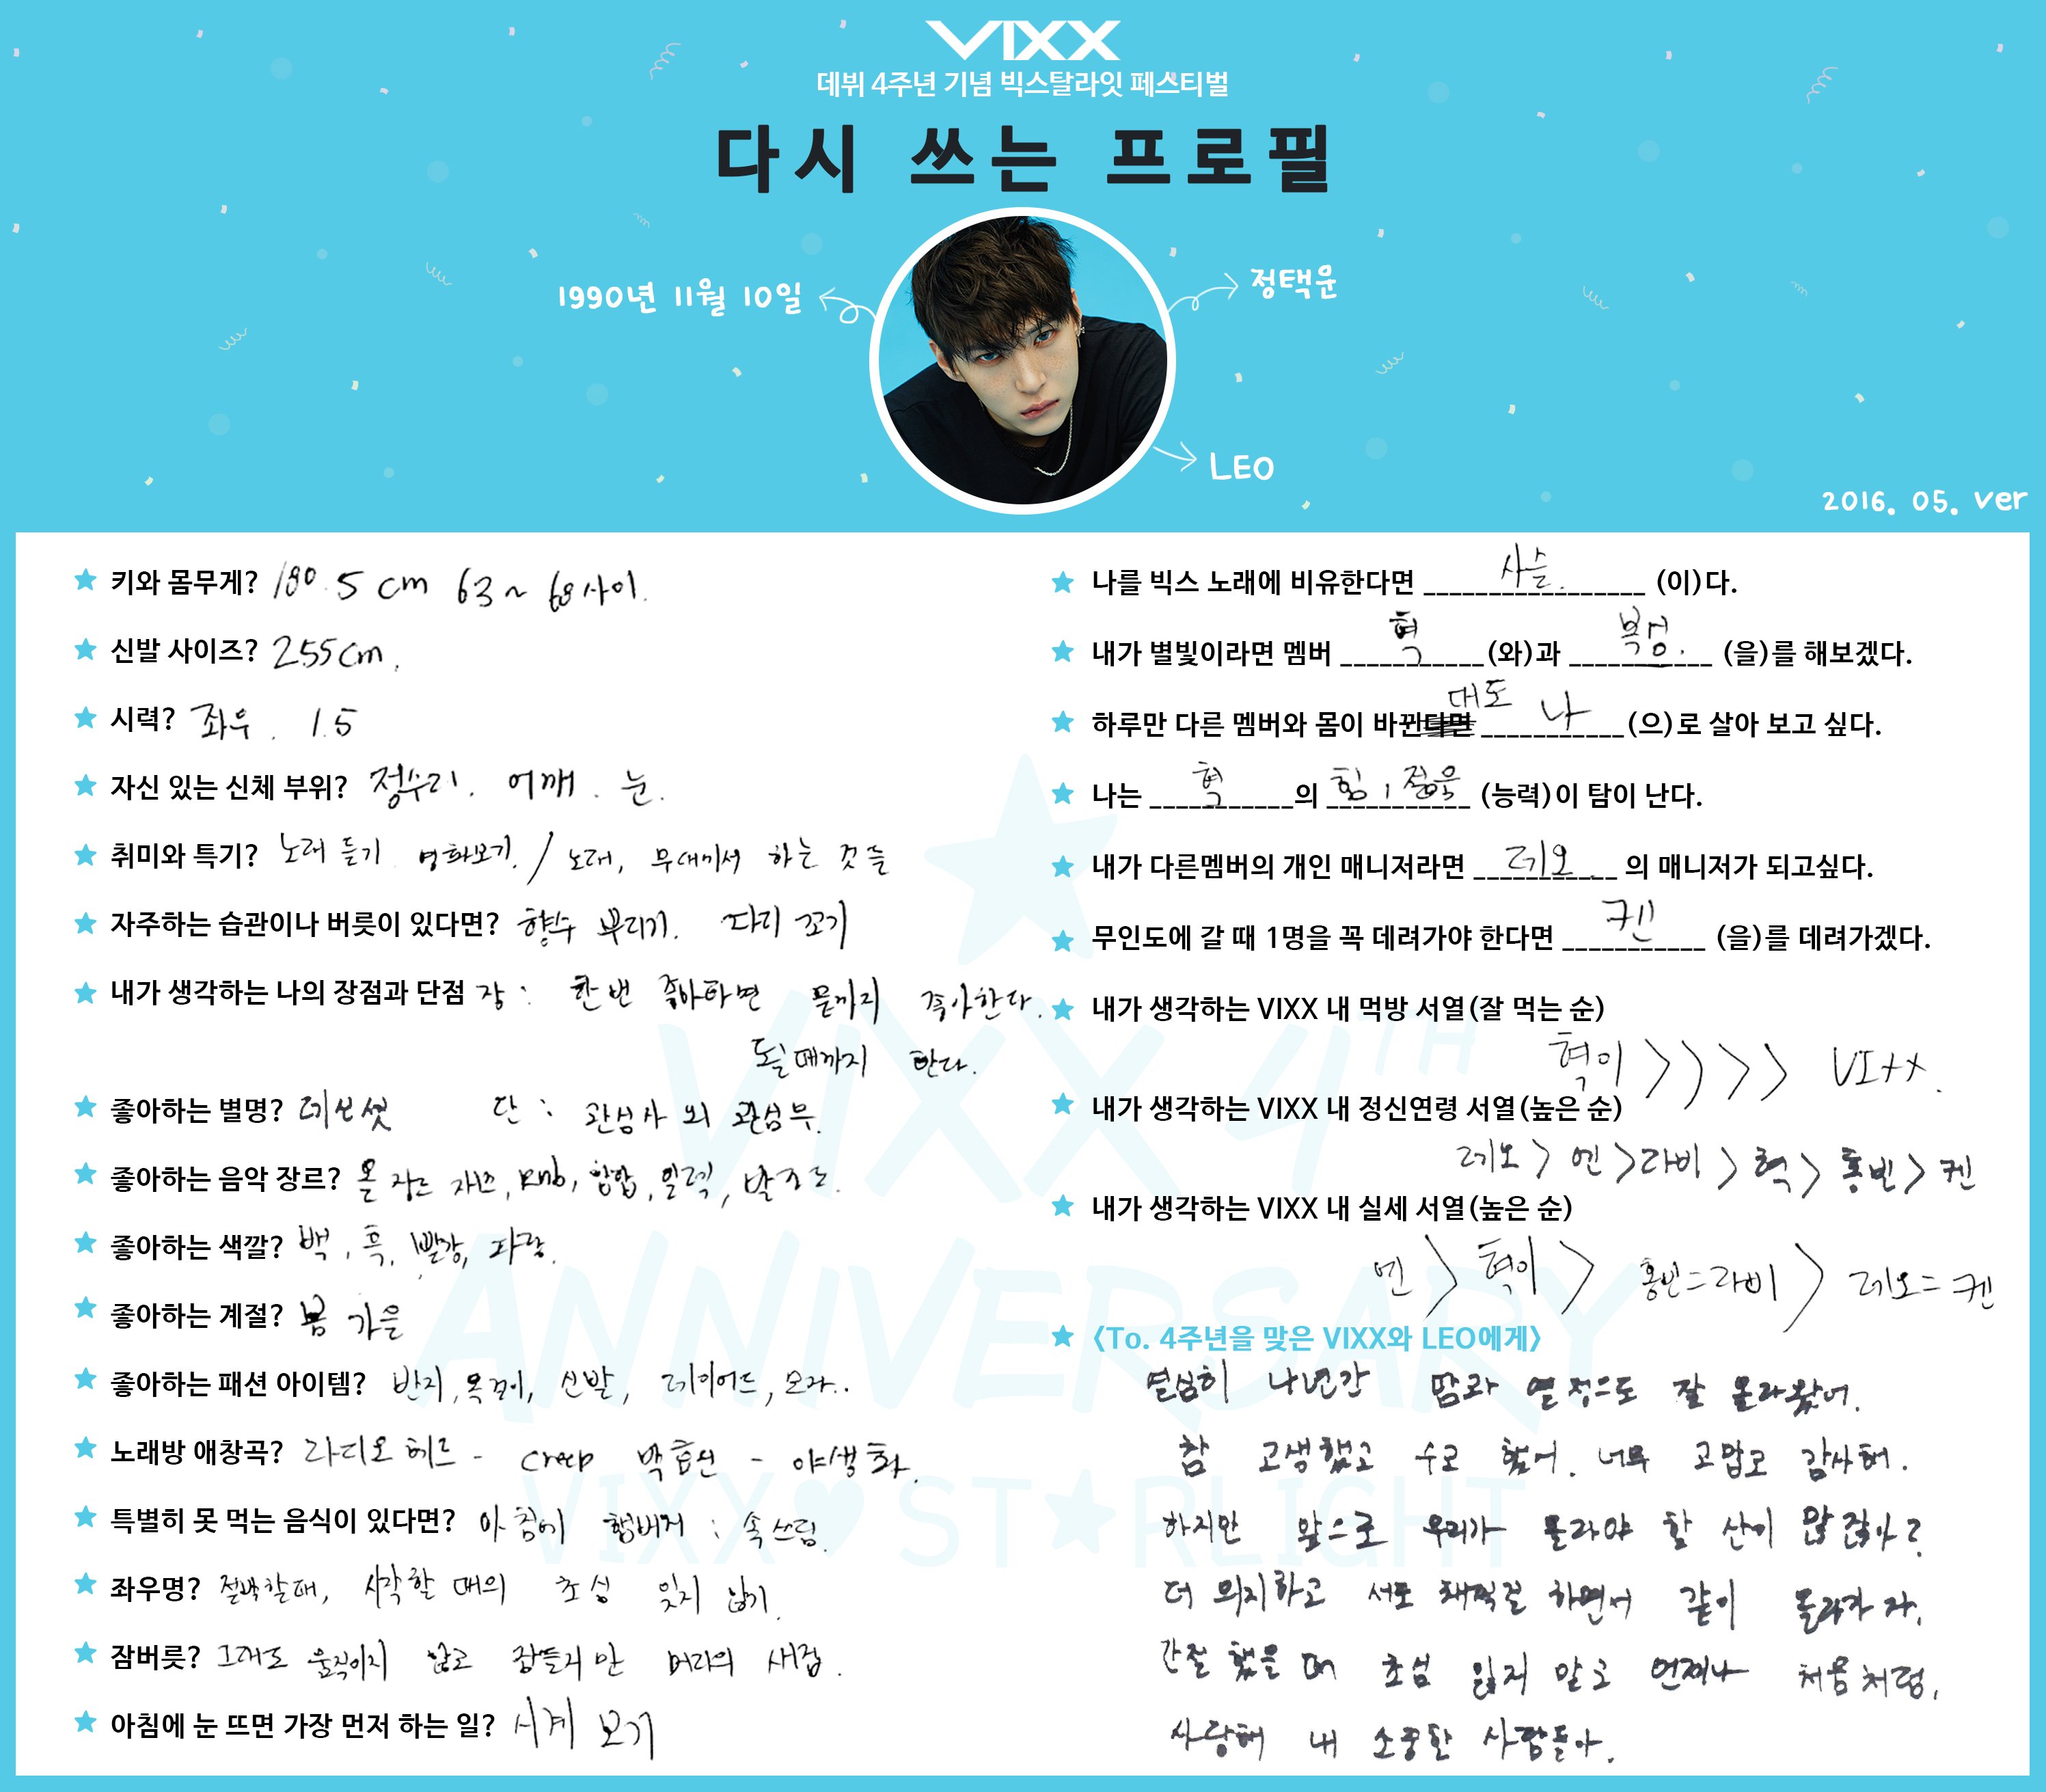 VIXX
데뷔 4주년 기념 빅스탈라잇 페스티벌
다시 쓰는 프로필
1990년 11월 10일
정택운
LEO
2016. 05. ver
키와 몸무게? 180.5cm 63~68사이.
신발 사이즈? 255cm.
시력? 좌우. 1.5
자신 있는 신체 부위? 정수리. 어깨. 눈.
취미와 특기? 노래 듣기 영화보기. / 노래, 무대에서 하는 것들
자주하는 습관이나 버릇이 있다면? 향수 뿌리기. 다리 꼬기
내가 생각하는 나의 장점과 단점 장: 한번 좋아하면 끝까지 좋아한다.
될때까지 한다.
단: 관심사 외 관심무.
좋아하는 별명?
좋아하는 음악 장르? 올 장르 재즈, RnB, 힙합, 일렉, 발라드.
좋아하는 색깔? 백, 흑, 빨강, 파랑.
좋아하는 계절? 봄 가을
좋아하는 패션 아이템? 반지, 목걸이, 신발, 레이어드, 모자..
노래방 애창곡? 라디오헤드 - creep 박효신 - 야생화.
특별히 못 먹는 음식이 있다면? 아침에 햄버거 : 속쓰림.
좌우명? 절박할때, 시작할 때의 초심 잊지 않기.
잠버릇? 그대로 움직이지 않고 잠들지만 머리의 새집.
아침에 눈 뜨면 가장 먼저 하는 일? 시계 보기
나를 빅스 노래에 비유한다면 사슬. (이)다.
내가 별빛이라면 멤버 혁 (와)과 복싱. (을)를 해보겠다.
하루만 다른 멤버와 몸이 바뀐대도 나 (으)로 살아 보고 싶다.
나는 혁 의 힘, 젊음 (능력)이 탐이 난다.
내가 다른멤버의 개인 매니저라면 레오 의 매니저가 되고싶다.
무인도에 갈 때 1명을 꼭 데려가야 한다면 켄 (을)를 데려가겠다.
내가 생각하는 VIXX 내 먹방 서열(잘 먹는 순)
혁이 >>>> VIXX.
내가 생각하는 VIXX 내 정신연령 서열(높은 순)
레오 > 엔 > 라비 > 혁 > 홍빈 > 켄
내가 생각하는 VIXX 내 실세 서열(높은 순)
엔 > 혁이 > 홍빈=라비 > 레오=켄
<To. 4주년을 맞은 VIXX와 LEO에게>
열심히 4년간 땀과 열정으로 잘 올라왔어.
참 고생했고 수고 했어. 너무 고맙고 감사해.
하지만 앞으로 우리가 올라야 할 산이 많잖아?
더 의지하고 서로 채찍질 하면서 같이 올라가자.
간절했을 때 초심 잃지 말고 언제나 처음처럼.
사랑해 내 소중한 사람들아.
VIXX 4TH
ANNIVERSARY
VIXX♥ST★RLIGHT